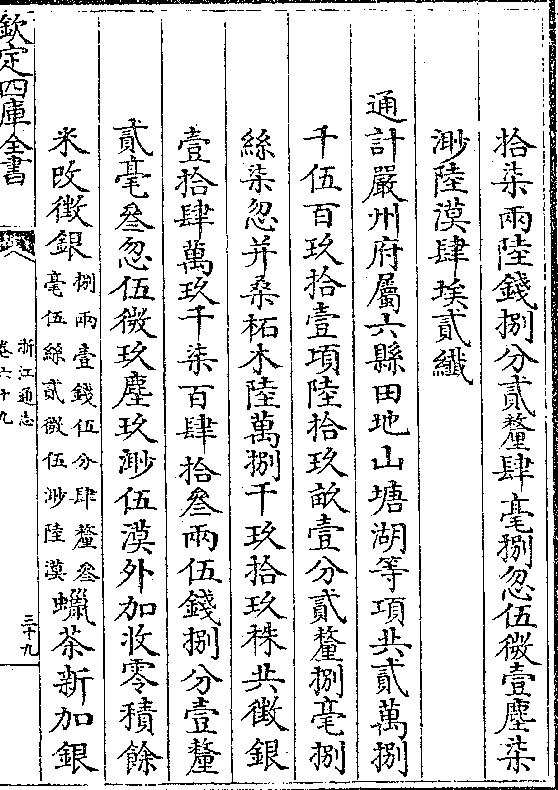 拾柒兩陸錢捌分貳釐肆毫捌忽伍微壹塵柒
渺陸漠肆埃貳纖
通計嚴州府屬六縣田地山塘湖等項共貳萬捌
千伍百玖拾壹項陸拾玖畝壹分貳釐捌毫捌
絲柒忽并桑柘木陸萬捌千玖拾玖株共徵銀
壹拾肆萬玖千柒百肆拾叄兩伍錢捌分壹釐
貳毫叄忽伍微玖塵玖渺伍漠外加收零積餘
米改徵銀捌兩壹錢伍分肆釐叄毫伍絲貳微伍渺陸漠蠟茶新加銀
欽定四庫全書
浙江通志
卷六十九
三十九